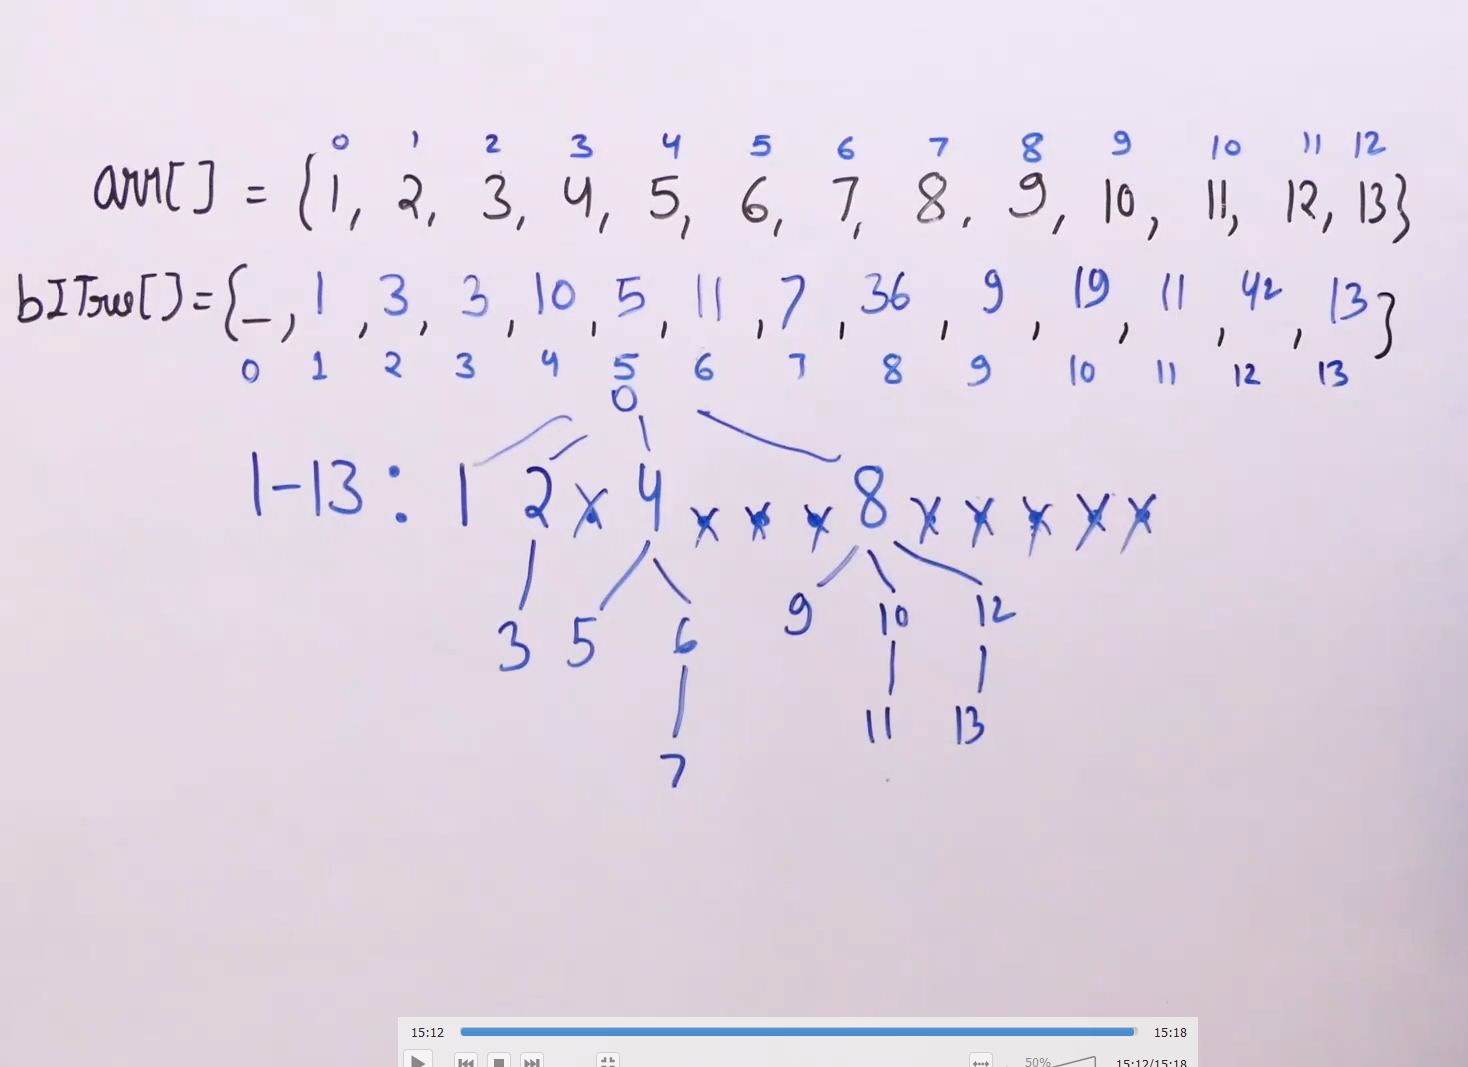 0 1 2 3 4 5 6 7 8 9 10 11 12
arr[] = {1, 2, 3, 4, 5, 6, 7, 8, 9, 10, 11, 12, 13}
bITree[] = {_, 1, 3, 3, 10, 5, 11, 7, 36, 9, 19, 11, 42, 13}
0 1 2 3 4 5 6 7 8 9 10 11 12 13
0
1-13: 1 2 x 4 x x x 8 x x x x x
3 5 6 9 10 12
7 11 13
15:12 15:18
50% 15:12/15:18